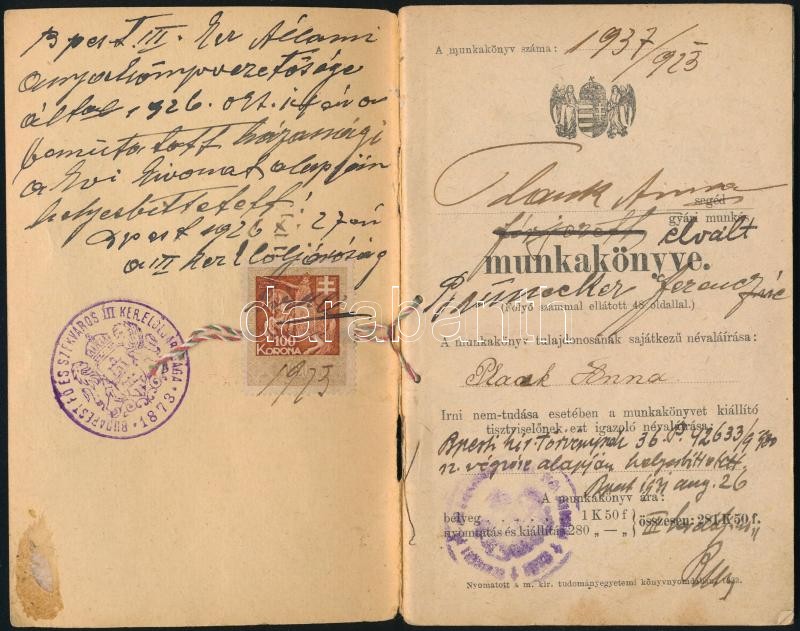 Bpest III. Ker Állami
anyakönyvvezetősége
által 1926. okt.
bemutatott házassági
a kvi kivonat alapján
helyesbittetett!
Bpest 1926 27én
a III ker Elöljáróság
BUDAPEST FŐ ÉS SZÉKVÁROS III KER. ELÖLJÁRÓSÁGA
1873
100
KORONA
1925
A munkakönyv száma: 1937/925
Plank Anna
segéd
gyári munkás
férjezett elvált
munkakönyve.
Prünecker Ferenczné
(Folyó számmal ellátott 48 oldallal.)
A munkakönyv tulajdonosának sajátkezű névaláirása:
Plank Anna
Irni nem-tudása esetében a munkakönyvet kiállító
tisztviselőnek ezt igazoló névaláirása:
Bpesti kir. Törvényszék 36 P. 42633/
sz. végzése alapján helyesbittetett
Bpest aug. 26
A munkakönyv ára:
bélyeg 1 K 50 f
nyomtatás és kiállítás 280 „ — „
összesen: 281 K 50 f.
Nyomatott a m. kir. tudományegyetemi könyvnyomdában
darabanth.com